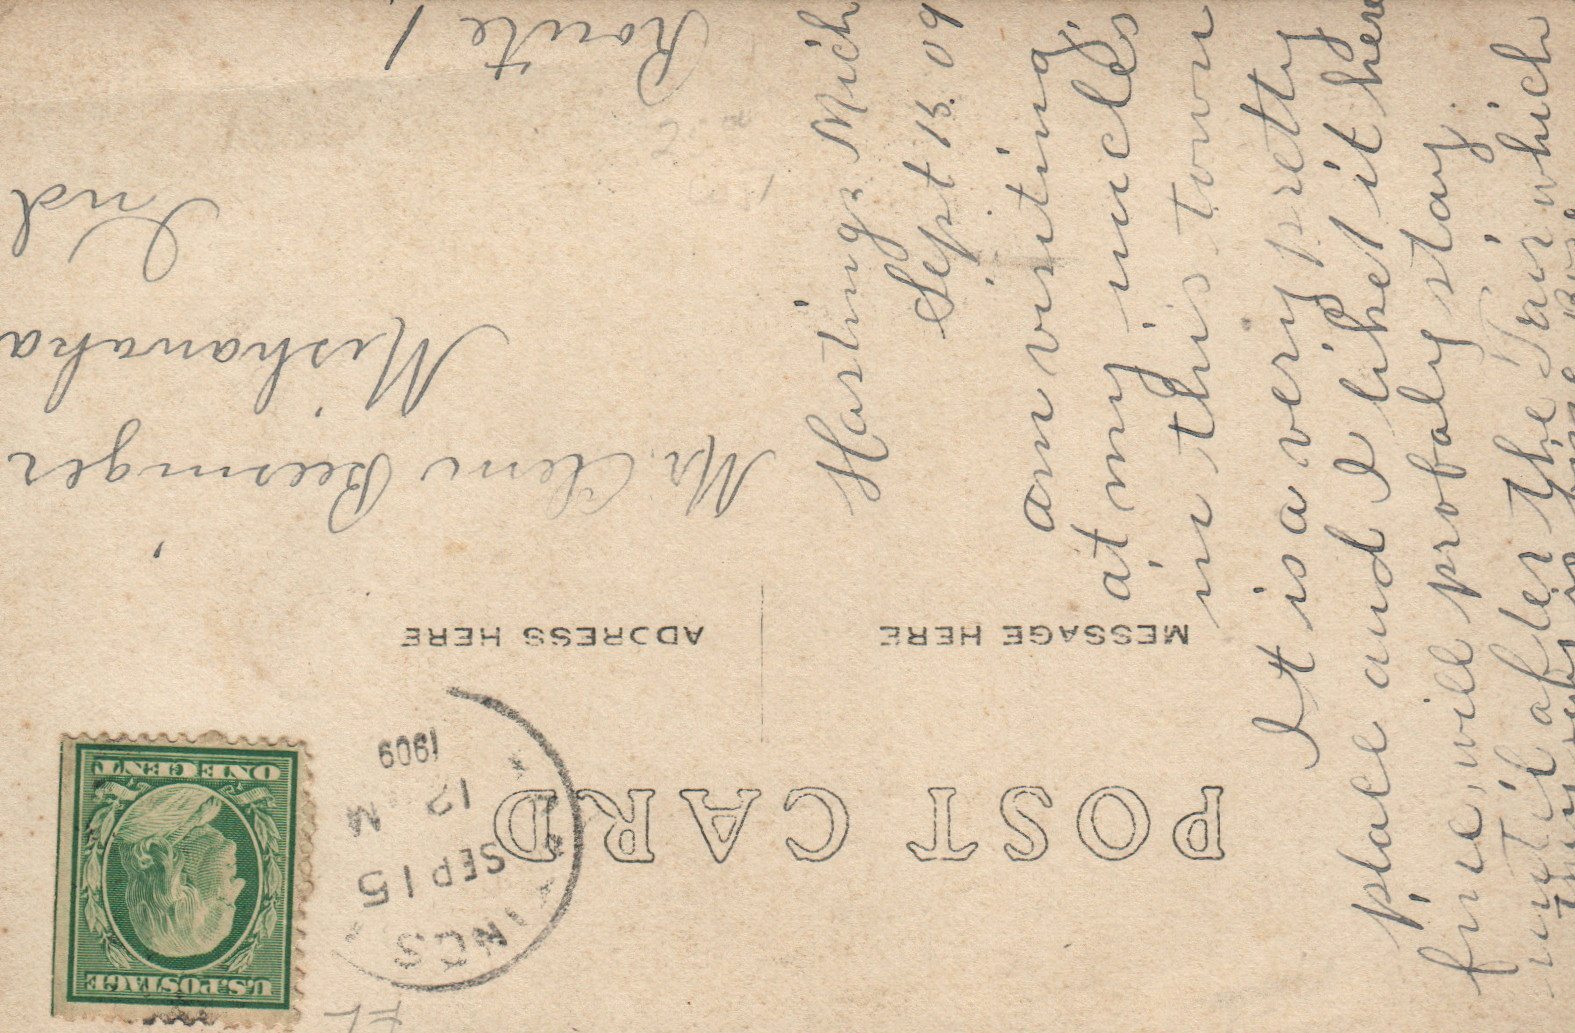 POST CARD
MESSAGE HERE
ADDRESS HERE
U.S. POSTAGE
ONE CENT
NGS
SEP 15
12 M
1909
Hastings Mich
Sept 15. 09
am visiting
at my uncles
in this town
It is a very pretty
place and I like it here
fine, will probaly stay
until after the Fair which
Mr. Clem Beesinger
Mishawaka
Ind
Route 1